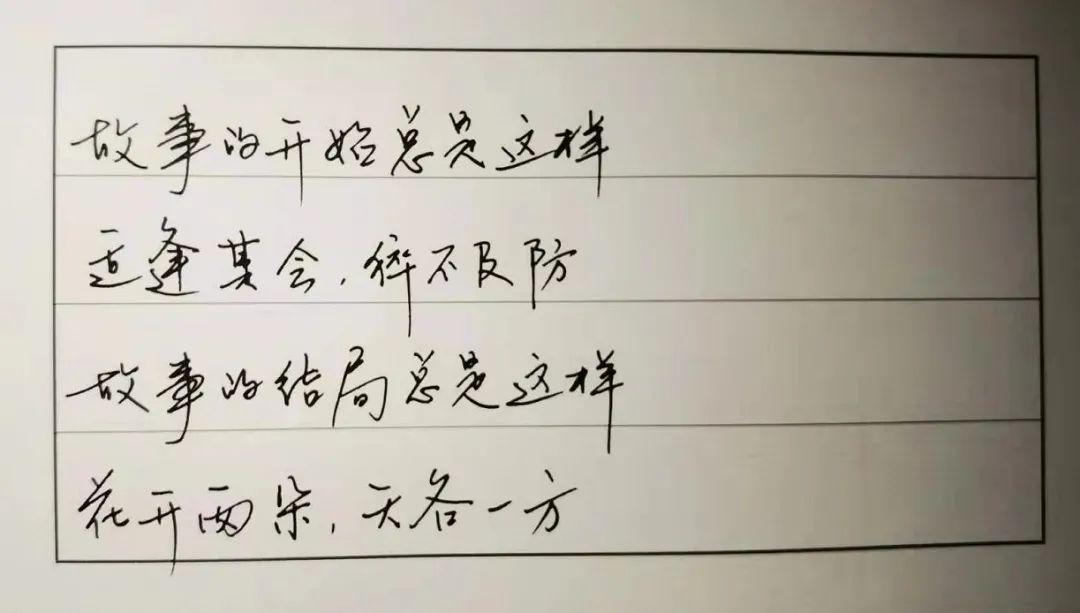 故事的开始总是这样
适逢其会，猝不及防
故事的结局总是这样
花开两朵，天各一方